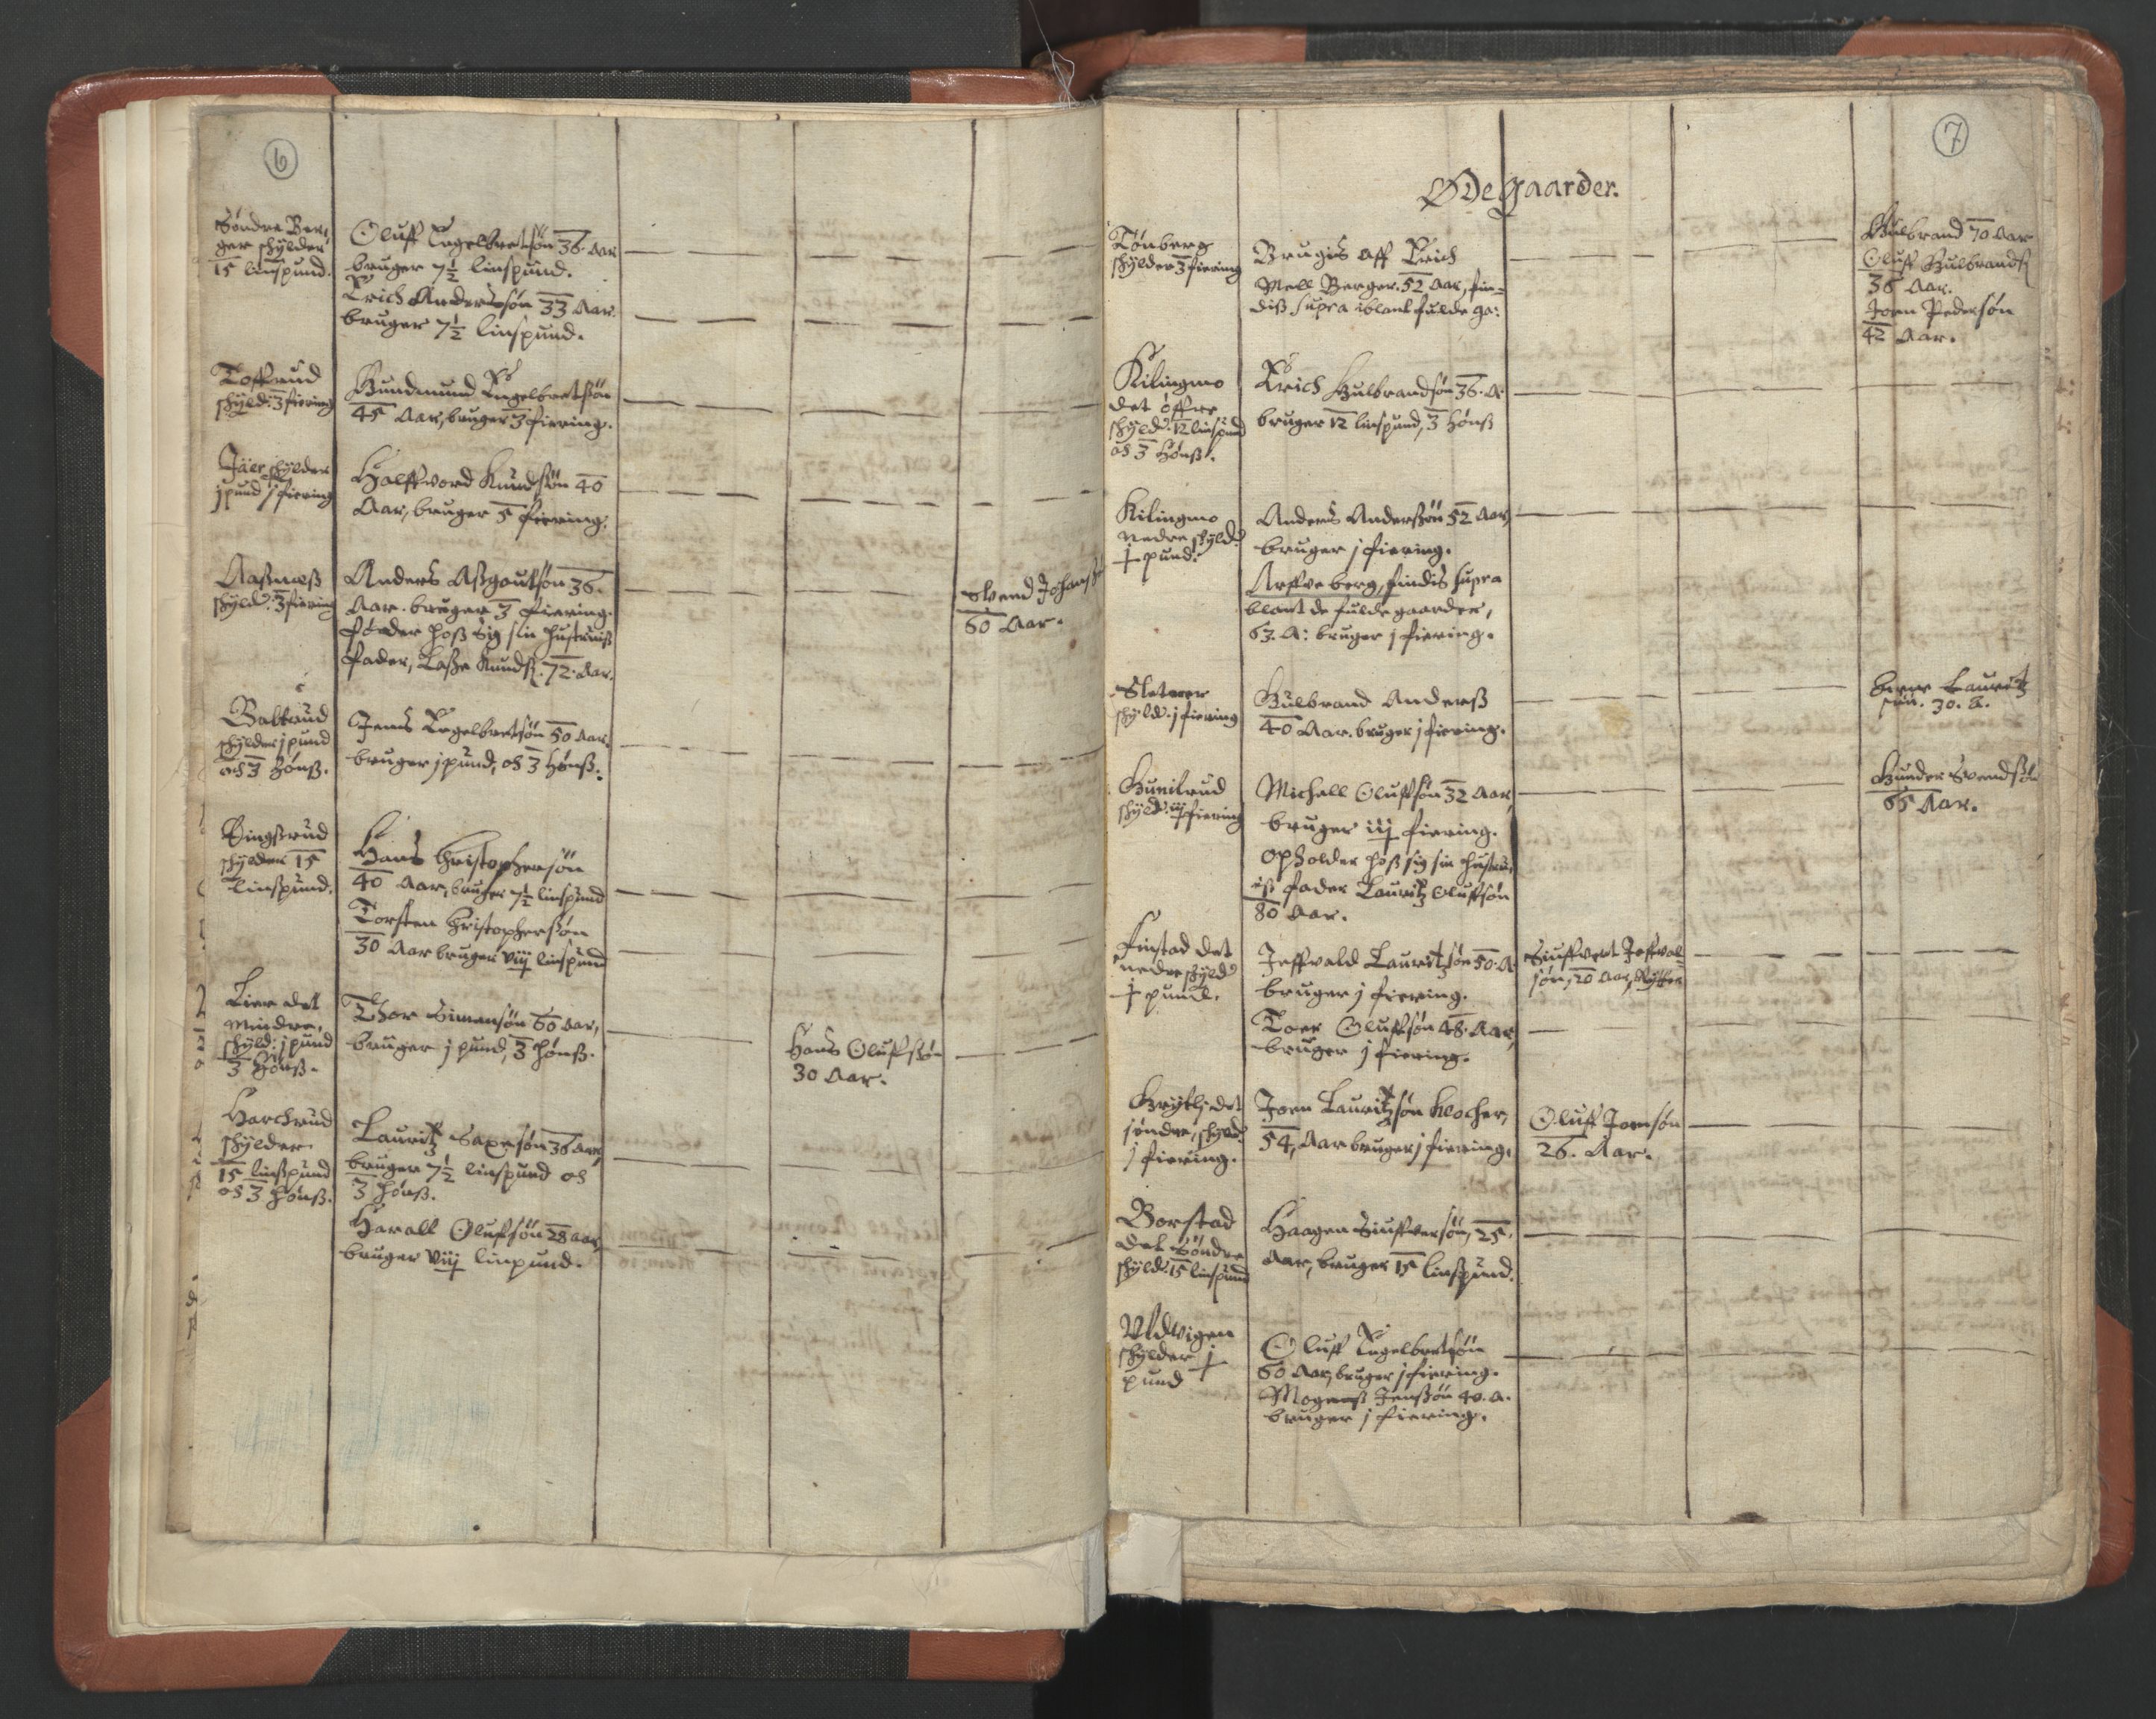 6
Søndre Ber,
ger schylder
15 linspund.
Oluff Engelbretsøn 36. Aar
bruger 7½ linspund.
Erich Andersøn 33 Aar.
bruger 7½ linspund.
Toffrud
schyld: 3 fiering
Gundmund Engelbretsøn
45 Aar, bruger 3 fiering.
Jäer schylder
j pund j fiering
Halffvord Knudsøn 40
Aar, bruger 5 fiering.
Aaßnæß
schyld: 3 fiering
Anders Aßgoutsøn 36.
Aar. bruger 3 fiering.
føder hoß sig sin hustruiß
fader, Laße Knudß. 72. Aar.
Svend Johanß
60 Aar.
schylder j pund
och 3 Hønß.
Jens Engelbretsøn 50 Aar.
bruger j pund, och 3 Hønß.
Ringsrud
schylder 15
linspund.
Hans Christophersøn
40 Aar, bruger 7½ linspund
Torsten Christophersøn
30 Aar bruger viij linspund
Lier det
mindre,
schyld: j pund
3 Hønß.
Thor Simensøn 60 Aar,
bruger j pund, 3 Hønß.
Hans Oluffsøn
30 Aar.
Harchrud
schylder
15 linspund
och 3 Hønß.
Lauritz Saxesøn 36 Aar,
bruger 7½ linspund och
3 Hønß.
Harall Oluffsøn 28 aar,
bruger viij linpund.
7
Øde gaarder.
Tønberg
schylder 3 fiering
Brugis aff Erich
Mell Berger. 52 Aar, fin-
diß supra iblant fulde ga:
Gulbrand 70 Aar
Oluff Gulbrandß
36 Aar.
Joen Pedersøn
42 Aar.
Kilingmo
det öffre
schyld: 12 linspund
och 3 Hønß.
Erich Gulbrandsøn 36. A.
bruger 12 linspund, 3 Hønß
Kilingmo
nedre schyld:
½ pund.
Anders Anderßøn 52 Aar,
bruger j fiering.
Arffve berg, findis supra
blant de fulde gaarder,
63. A: bruger j fiering.
Sletner
schyld: j fiering
Gulbrand Anderß
40 Aar. bruger j fiering.
Lauritz
søn. 30. A.
Gunilrud
schyld: iij fiering
Michell Oluffsøn 32 Aar,
bruger iij fiering.
opholder hoß sig sin hustru,
iß fader Lauritz Oluffsøn
80 Aar.
Gunder Svendsøn
65 Aar.
Finstad det
nedre schyld
½ pund.
Jeffvald Lauritzsøn 50. A.
bruger j fiering.
Toer Oluffsøn 48. Aar,
bruger j fiering.
Siuffvert Jeffval-
søn, 20 Aar, Rytter
søndre, schyld:
j fiering.
Joen Lauritzsøn Klocher,
54, Aar bruger j fiering,
Oluff Joensøn
26. Aar.
Borstad
det Søndre
schyld: 15 linspund
Haagen Siuffversøn, 25.
Aar, bruger 15 linspund.
Uldvigen
schylder ½
pund
Oluff Engelbretsøn
60 Aar, bruger j fiering.
Mogenß Jenßøn 40. A.
bruger j fiering.